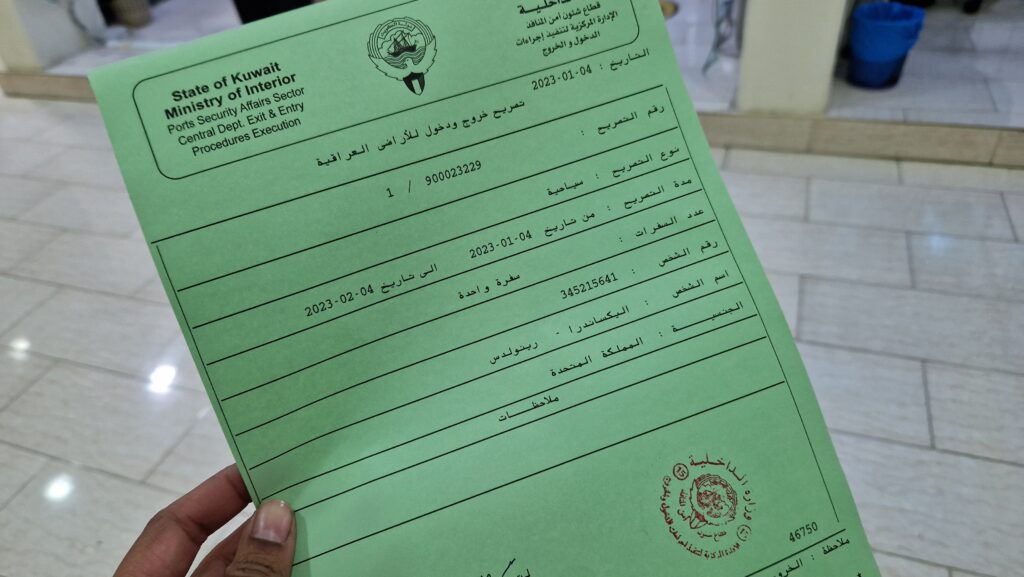 State of Kuwait
Ministry of Interior
Ports Security Affairs Sector
Central Dept. Exit & Entry
Procedures Execution
قطاع شئون أمن المنافذ
الإدارة المركزية لتنفيذ إجراءات
الدخول والخروج
التاريخ : 2023-01-04
تصريح خروج ودخول للأراضي العراقية
رقم التصريح : 900023229 / 1
نوع التصريح : سياحية
مدة التصريح : من تاريخ 2023-01-04 الى تاريخ 2023-02-04
عدد السفرات : سفرة واحدة
رقم الشخص : 345215641
اسم الشخص : اليكساندرا - رينولدس
الجنسية : المملكة المتحدة
ملاحظات
وزارة الداخلية
46750
ملاحظة :